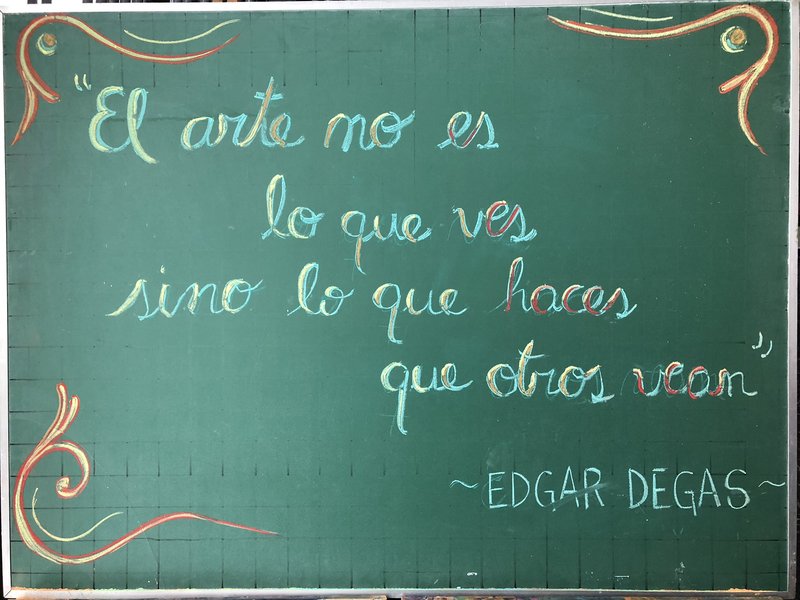 “El arte no es
lo que ves
sino lo que haces
que otros vean”
~EDGAR DEGAS~